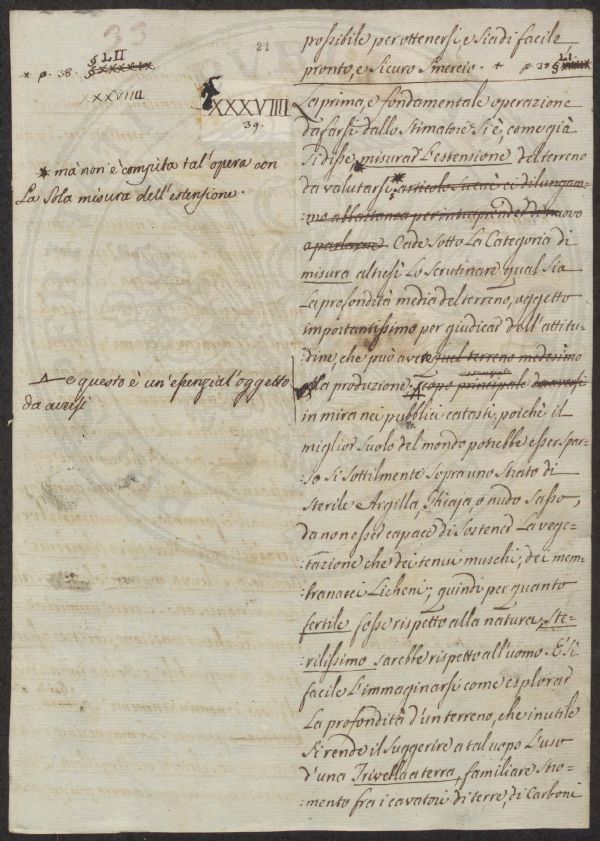 33
21
* p. 38. § LII
§ XXXXIX
XXXVIIII
XXXVIIII
39.
* mà non è compita tal'opera con
La Sola misura dell'estensione.
e questo è un'esenzial'oggetto
da aversi
possibile per ottenersi, e sia di facile
pronto, e sicuro smercio. * p. 39 § LI.
La prima, e fondamentale operazione
da farsi dallo Stimatore si è, come già
si disse, misurar L'estensione del terreno
da valutarsi; * articolo su cui ci dilungam-
mo abbastanza per intraprender di nuovo
a parlarne. Cade sotto La Categoria di
misura altresì Lo Scrutinare qual sia
La profondità media del terreno, oggetto
importantissimo per giudicar dell'attitu-
dine, che può avere quel terreno medesimo
alla produzione; scopo principale da aversi
in mira nei pubblici catasti, poichè il
miglior suolo del mondo potrebbe esser spar-
so sì sottilmente sopra uno strato di
sterile Argilla, Ghiaja, o nudo Sasso,
da non esser capace di Sostener La vege-
tazione che dei tenui muschi, dei mem-
:branacei Licheni; quindi per quanto
fertile fosse rispetto alla natura, ste-
:rilissimo sarebbe rispetto all'uomo. È sì
facile L'immaginarsi come esplorar
La profondità d'un terreno, che inutile
si rende il suggerire a tal uopo L'uso
d'una Trivella a terra, familiare stro-
:mento fra i cavatori di terre, di Carboni